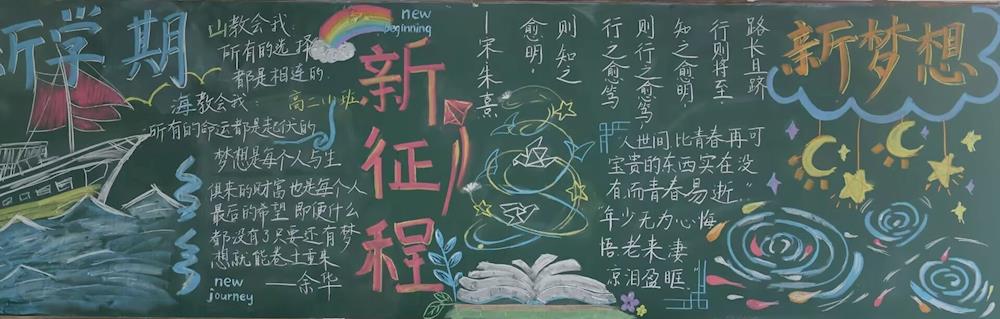 新学期
山教会我:
所有的选择
都是相连的.
海教会我:
高二11班
所有的命运都是起伏的
梦想是每个人与生
俱来的财富也是每个人
最后的希望 即便什么
都没有了只要还有梦
想就能卷土重来
——余华
new
journey
new
beginning
新征程
路长且跻
行则将至
知之愈明
则行之愈笃,
行之愈笃
则知之
愈明。
—宋·朱熹
"人世间比青春再可
宝贵的东西实在没
有,而青春易逝..."
"年少无为心悔
悟.老来凄
凉泪盈眶.
新梦想